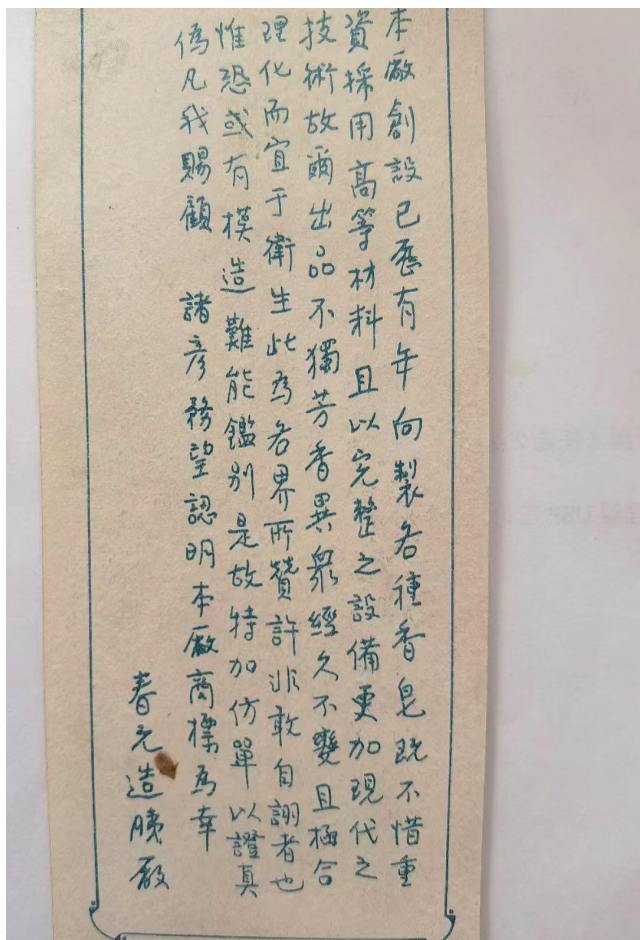 本廠創設已歷有年向製各種香皂既不惜重
資採用高等材料且以完整之設備更加現代之
技術故爾出品不獨芳香異眾經久不變且極合
理化而宜于衛生此為各界所贊許非敢自詡者也
惟恐或有模造難能鑑別是故特加仿單以證真
偽凡我賜顧 諸彥務望認明本廠商標為幸
春元造胰廠